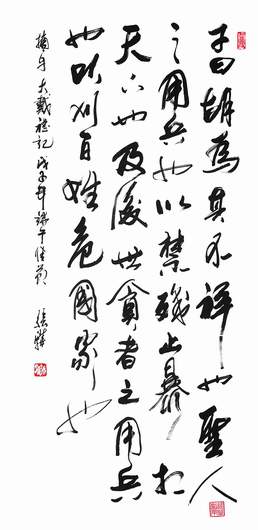 子曰胡為其不祥也聖人
之用兵也以禁殘止暴於
天下也及後世貪者之用兵
也以刈百姓危國家也
摘自大戴禮記戊子年端午佳節 張